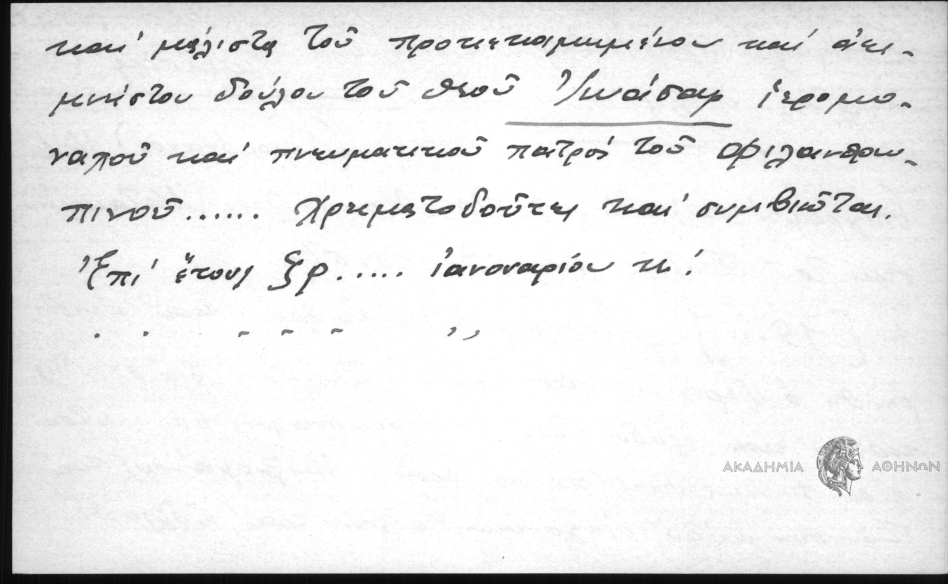 καὶ μάλιστα τοῦ προκεκοιμημένου καὶ ἀει-
μνήστου δούλου τοῦ Θεοῦ Ἰωάσαφ ἱερομο-
νάχου καὶ πνευματικοῦ πατρός τοῦ Φιλανθρω-
πινοῦ...... Χρεματοδοῦτες καὶ συμβιῶται.
Ἐπί ἔτους ξρ..... ἰανουαρίου κ!
. . - - - ,,
ΑΚΑΔΗΜΙΑ ΑΘΗΝΩΝ